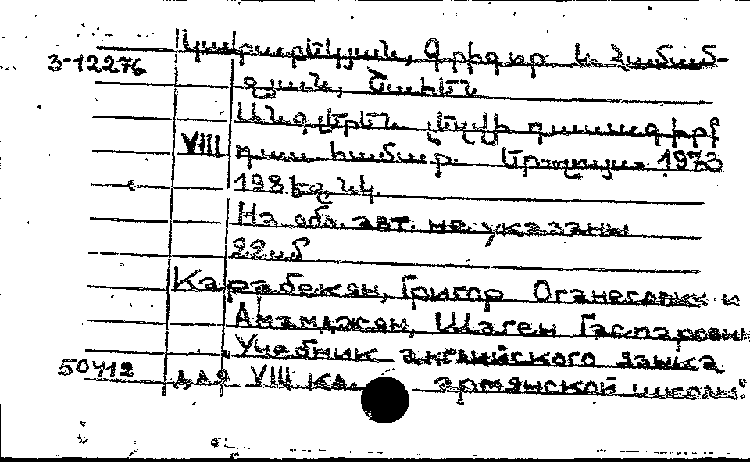 3-12276
Կարաբեկյան, Գրիգոր և Համամ-
ջյան, Շահեն
Անգլերեն լեզվի դասագիրք
VIII դաս. համար. Երևան 1973
198 էջ նկ.
На обл. авт. не указаны
22 սմ
Карабекян, Григор Оганесович и
Амамджян, Шаген Гаспарович
Учебник английского языка
50412 для VIII кл. армянской школы.